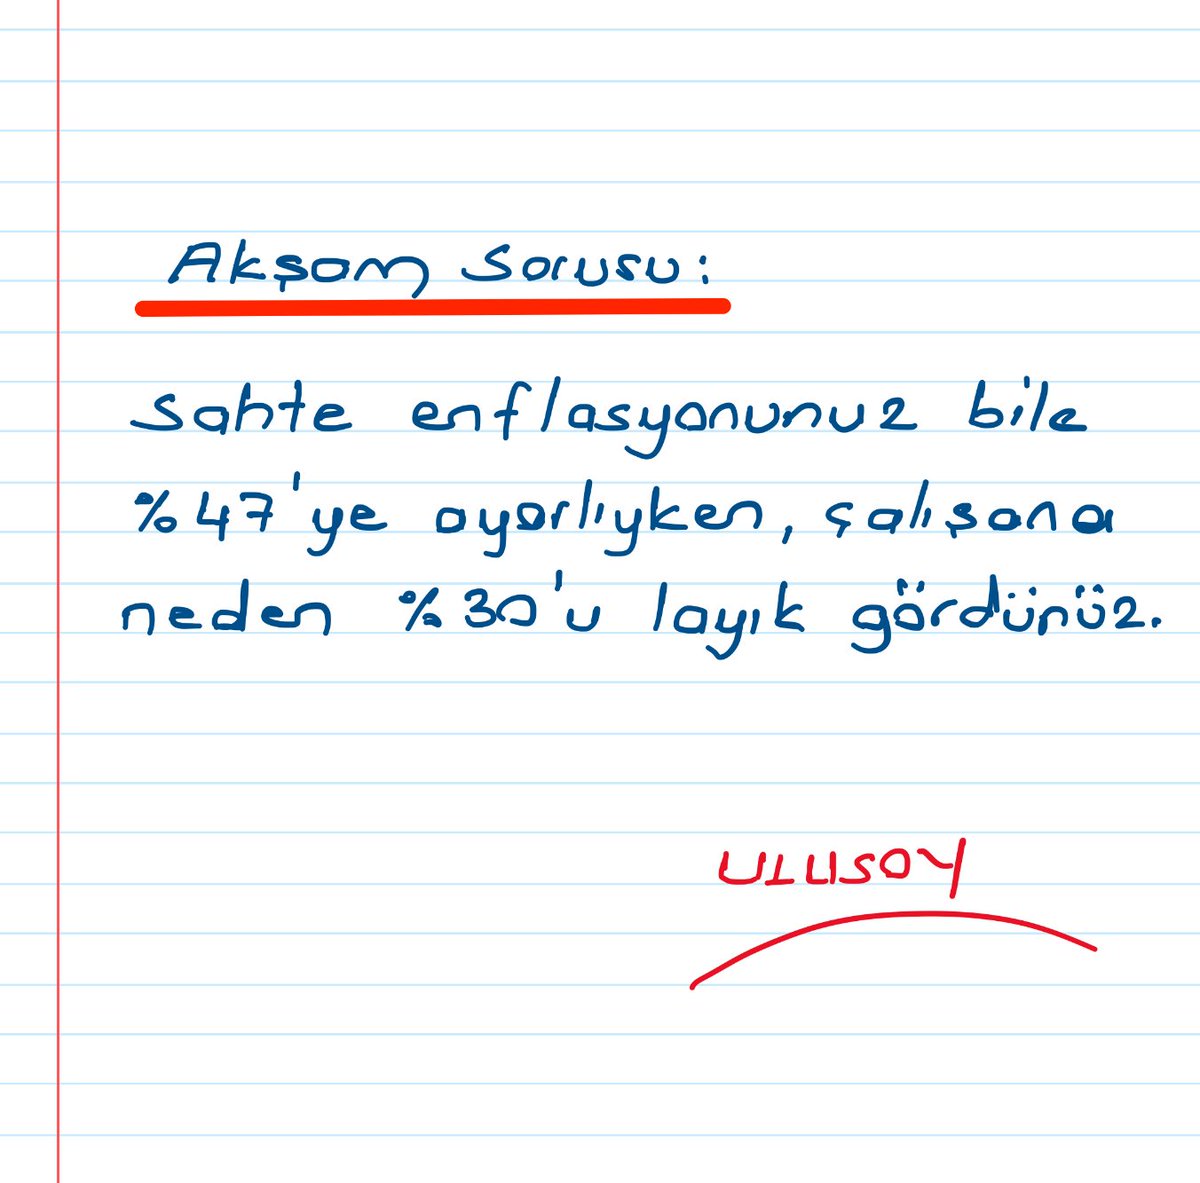 Akşam Sorusu:
Sahte enflasyonunuz bile
%47'ye ayarlıyken, çalışana
neden %30'u layık gördünüz.
ULUSOY